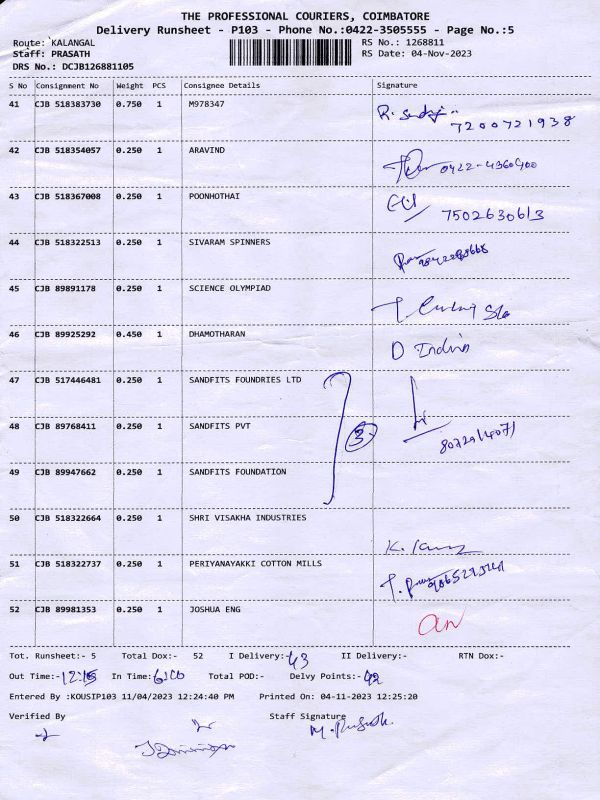 THE PROFESSIONAL COURIERS, COIMBATORE
Delivery Runsheet - P103 - Phone No.:0422-3505555 - Page No.:5
Route: KALANGAL RS No.: 1268811
Staff: PRASATH RS Date: 04-Nov-2023
DRS No.: DCJB126881105
S No Consignment No Weight PCS Consignee Details Signature
41 CJB 518383730 0.750 1 M978347
7200721938
42 CJB 518354057 0.250 1 ARAVIND
0422-4360400
43 CJB 518367008 0.250 1 POONHOTHAI
7502630613
44 CJB 518322513 0.250 1 SIVARAM SPINNERS
45 CJB 89891178 0.250 1 SCIENCE OLYMPIAD
46 CJB 89925292 0.450 1 DHAMOTHARAN
47 CJB 517446481 0.250 1 SANDFITS FOUNDRIES LTD
48 CJB 89768411 0.250 1 SANDFITS PVT
3
49 CJB 89947662 0.250 1 SANDFITS FOUNDATION
50 CJB 518322664 0.250 1 SHRI VISAKHA INDUSTRIES
51 CJB 518322737 0.250 1 PERIYANAYAKKI COTTON MILLS
52 CJB 89981353 0.250 1 JOSHUA ENG
Tot. Runsheet:- 5 Total Dox:- 52 I Delivery:- 43 II Delivery:- RTN Dox:-
Out Time:- 12:15 In Time: Total POD:- Delvy Points:- 42
Entered By :KOUSIP103 11/04/2023 12:24:40 PM Printed On: 04-11-2023 12:25:20
Verified By Staff Signature